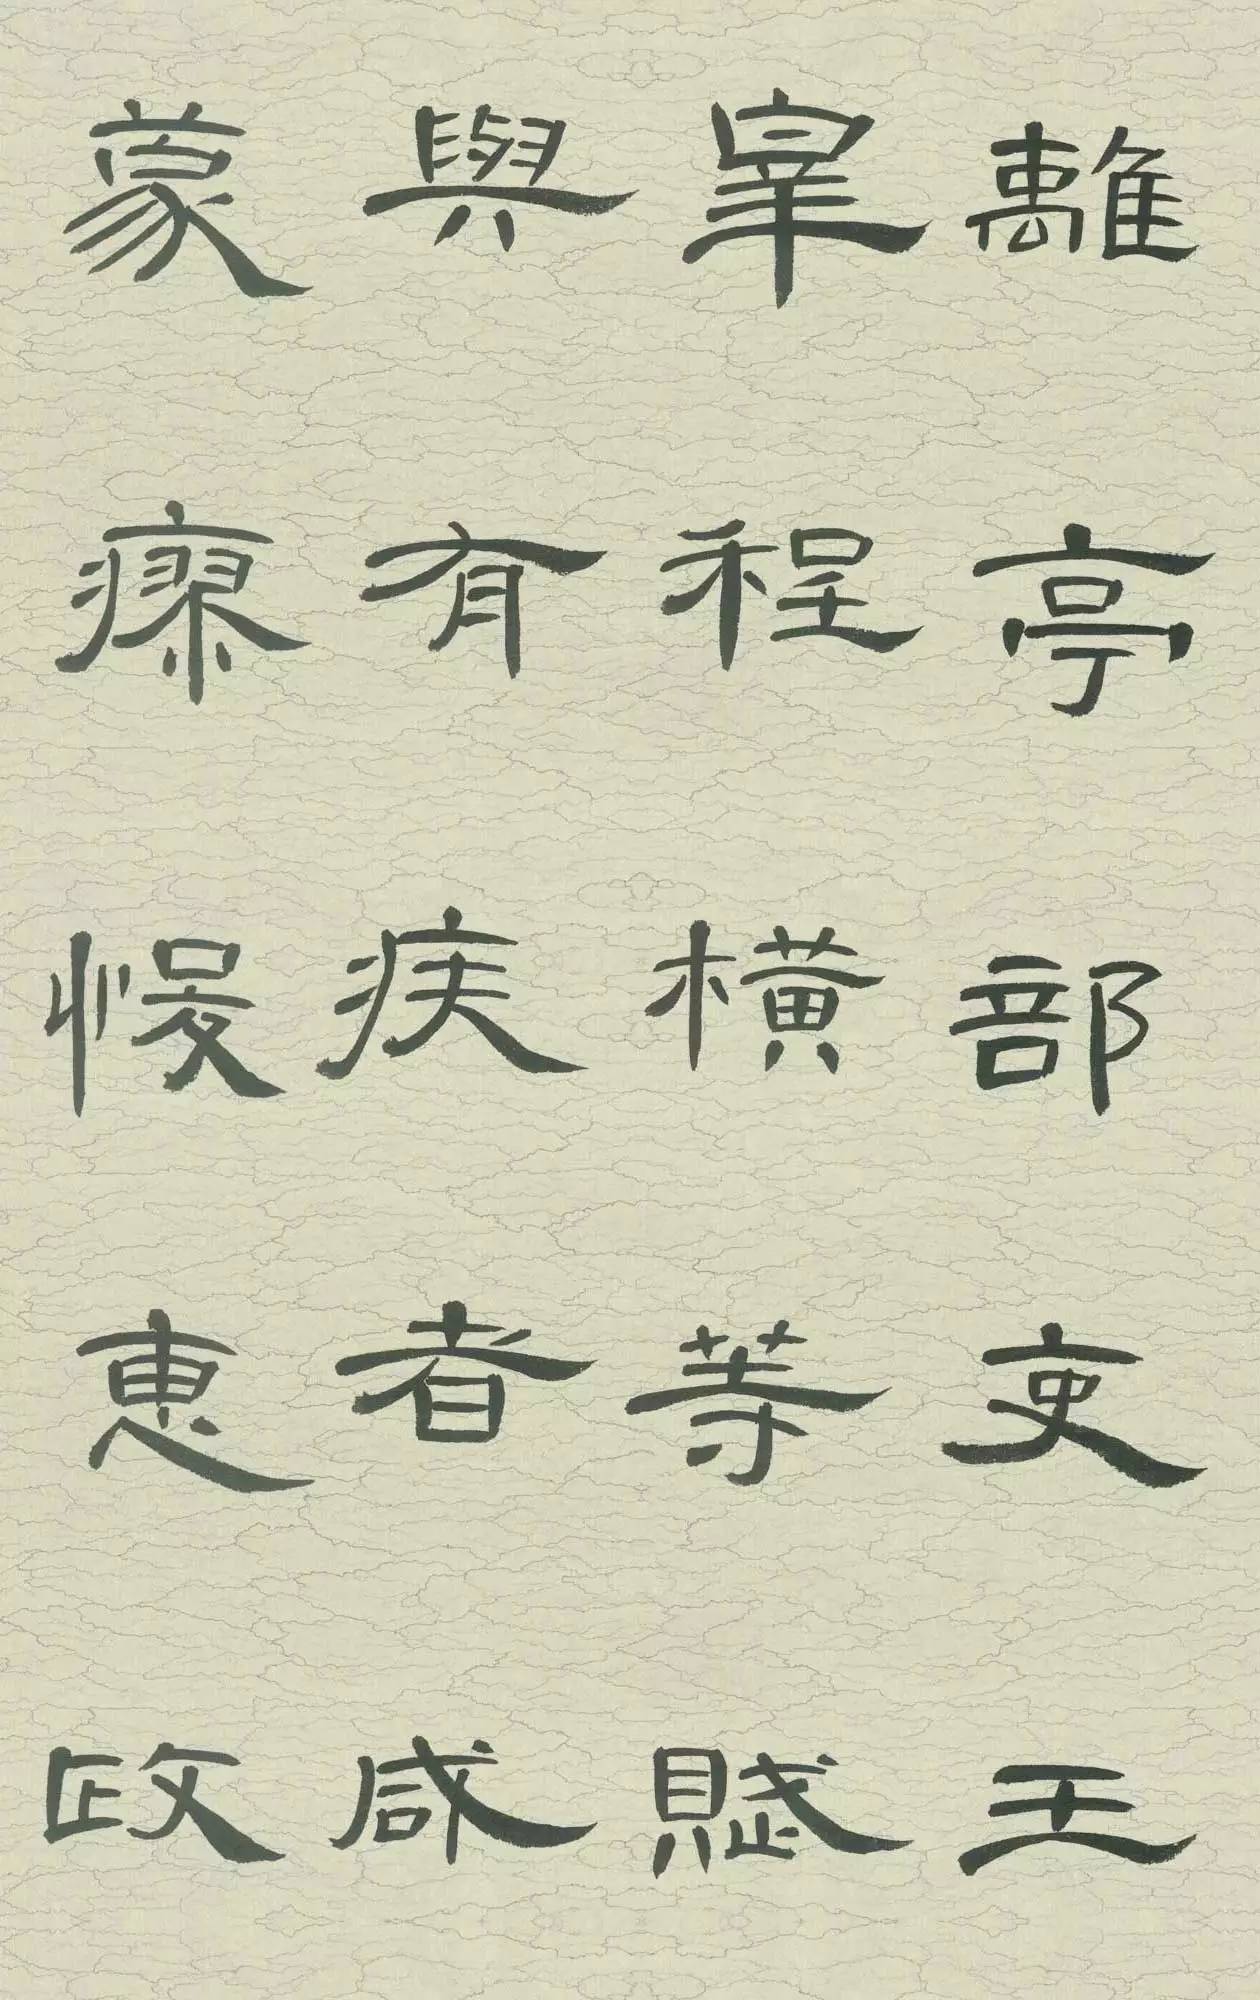 離亭部吏王
宰程橫等賦
與有疾者咸
蒙瘳悛惠政